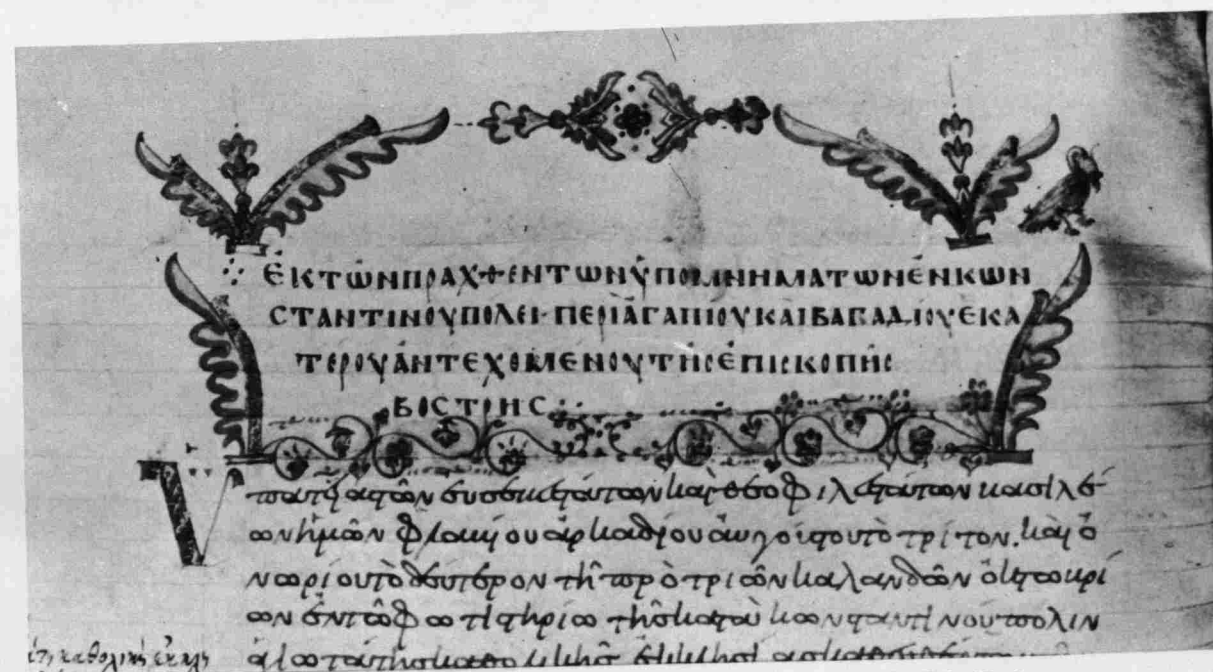 ἘΚ ΤΩΝ ΠΡΑΧΘΕΝΤΩΝ ὙΠΟΜΝΗΜΑΤΩΝ ἘΝ ΚΩΝ
CΤΑΝΤΙΝΟΥΠΟΛΕΙ· ΠΕΡΙ ἈΓΑΠΙΟΥ ΚΑΙ ΒΑΓΑΔΙΟΥ ΕΚΑ
ΤΕΡΟΥ ἈΝΤΕΧΟΜΕΝΟΥ ΤΗC ἘΠΙCΚΟΠΗC
ΒΟCΤΡΗC
Ὑπατείας τῶν εὐσεβεστάτων καὶ θεοφιλεστάτων βασιλέ
ων ἡμῶν φλαβίου ἀρκαδίου αὐγούστου τὸ τρίτον. καὶ ὁ
νωρίου τὸ δεύτερον τῆ πρὸ τριῶν καλανδῶν ὀκτωβρί
ων ἐν τῶ φωτιστηρίω τῆς κατὰ κωνσταντινούπολιν
ἁγιωτάτης καθολικῆς ἐκκλησίας
καθολικῆς ἐκκλη